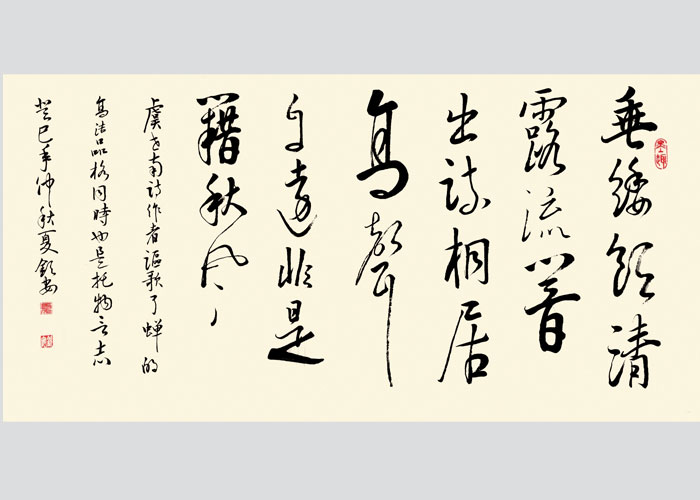 垂緌飲清
露流響
出疏桐居
高聲
自遠非是
籍秋風
虞世南詩作者謳歌了蝉的
高洁品格同時也是托物言志
癸巳年仲秋夏